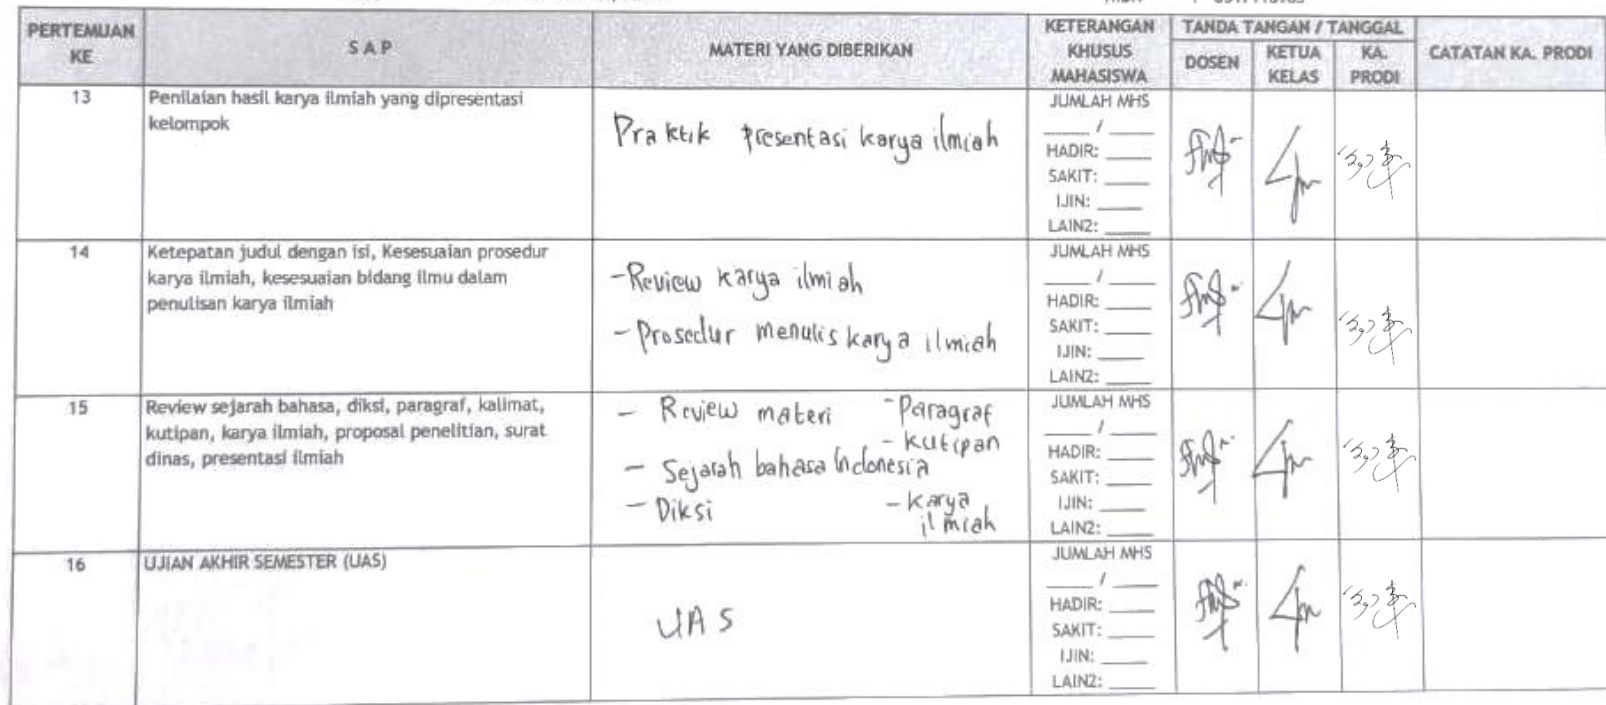 PERTEMUAN KE
S A P
MATERI YANG DIBERIKAN
KETERANGAN KHUSUS MAHASISWA
TANDA TANGAN / TANGGAL
DOSEN
KETUA KELAS
KA. PRODI
CATATAN KA. PRODI
13
Penilaian hasil karya ilmiah yang dipresentasi
kelompok
Praktik presentasi karya ilmiah
JUMLAH MHS
____ / ____
HADIR: ____
SAKIT: ____
IJIN: ____
LAIN2: ____
14
Ketepatan judul dengan isi, Kesesuaian prosedur
karya ilmiah, kesesuaian bidang ilmu dalam
penulisan karya ilmiah
-Review karya ilmiah
- Prosedur menulis karya ilmiah
JUMLAH MHS
____ / ____
HADIR: ____
SAKIT: ____
IJIN: ____
LAIN2: ____
15
Review sejarah bahasa, diksi, paragraf, kalimat,
kutipan, karya ilmiah, proposal penelitian, surat
dinas, presentasi ilmiah
- Review materi - Paragraf
- kutipan
- Sejarah bahasa Indonesia
- Diksi - karya
ilmiah
JUMLAH MHS
____ / ____
HADIR: ____
SAKIT: ____
IJIN: ____
LAIN2: ____
16
UJIAN AKHIR SEMESTER (UAS)
UAS
JUMLAH MHS
____ / ____
HADIR: ____
SAKIT: ____
IJIN: ____
LAIN2: ____